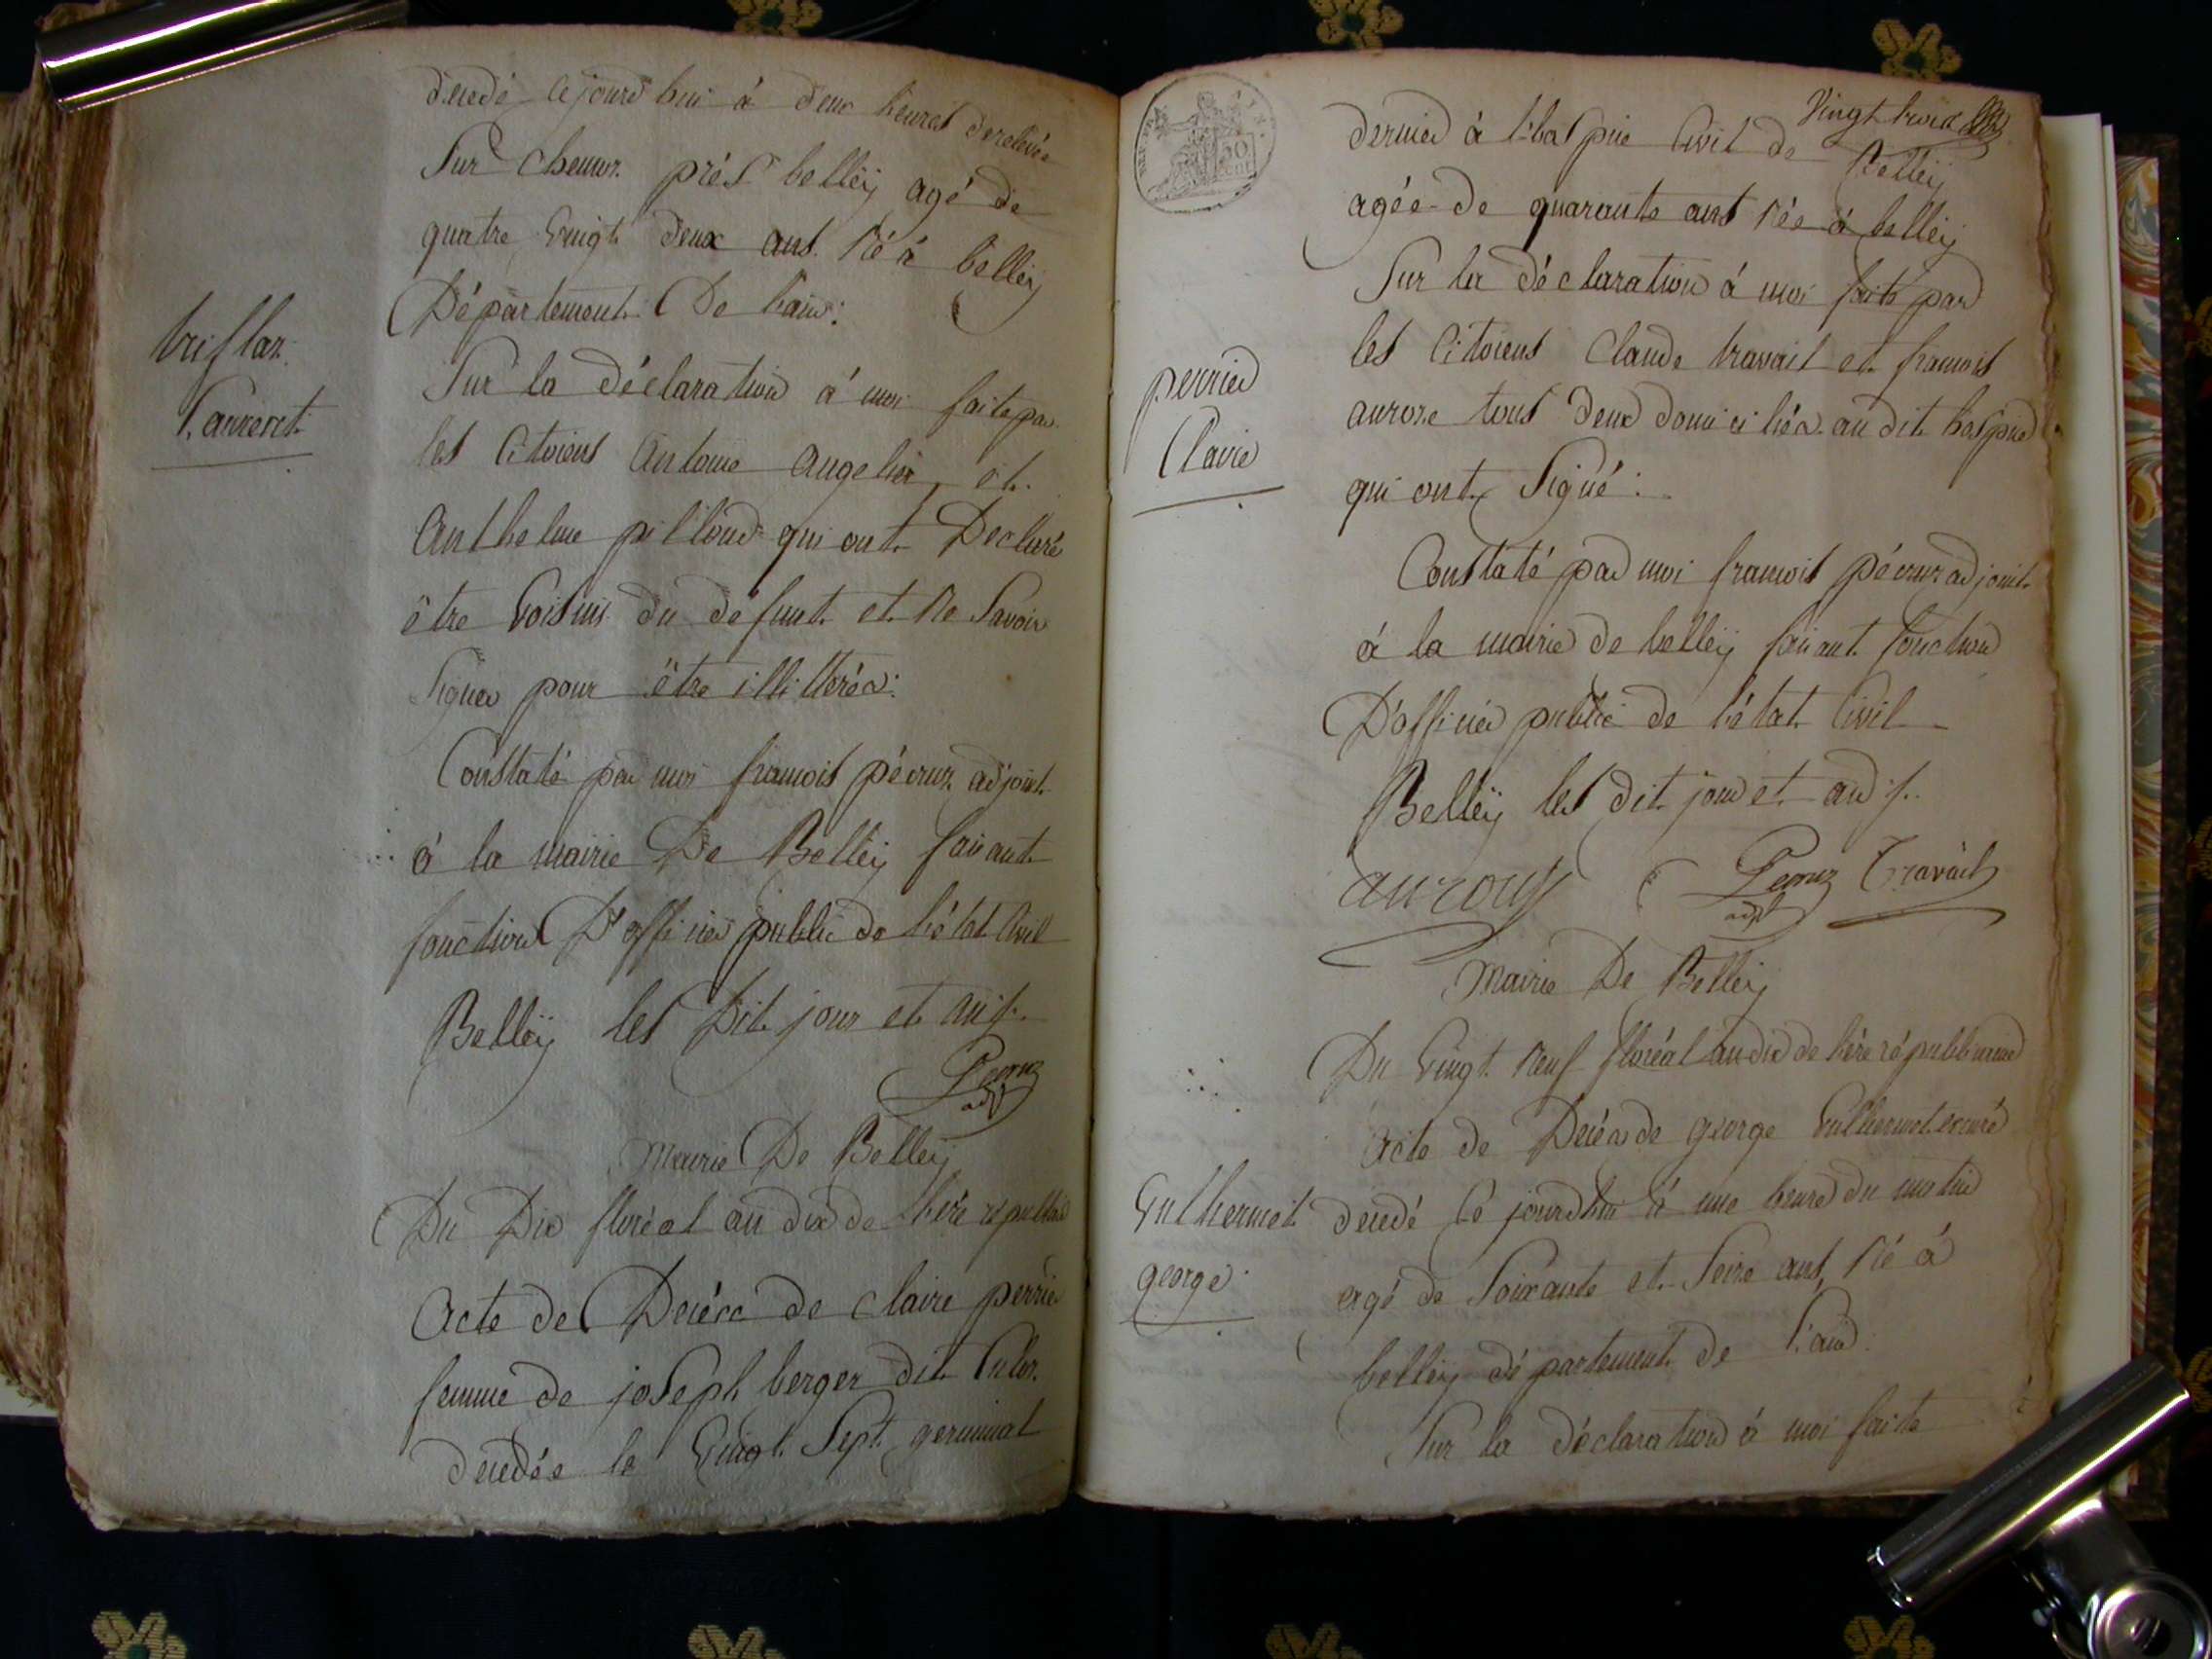 decedé cejourd'hui à deux heures derelevée
Sur Chemor près belleÿ agé de
quatre vingt deux ans né à belleÿ
Département De l'ain.
triflaz
Laurent
Sur la déclaration à moi faite par
les Citoiens Antoine angelier et
Anthelme pilloud qui ont Declaré
être Voisins du defunt et ne Savoir
Signer pour être illittérés.
Constaté par moi françois pécruz adjoint
à la mairie De Belleÿ faisant
fonction D'officier public de l'état Civil
Belleÿ les Dit jour et an /.
Pecruz
adjt
Mairie De Belleÿ
Du Dix floréal an dix de l'ère républic
Acte de Décès de claire perrier
femme de joseph berger dit
decedée le vingt Sept germinal
Vingt trois
dernier à l'hospice Civil de Belleÿ
agée de quarante ans née à belleÿ
Sur la déclaration à moi faite par
les Citoiens Claude travail et françois
aurore tous deux domiciliés audit hospice
qui ont Signé.
perrier
Claire
Constaté par moi françois pécruz adjoint
à la mairie de belleÿ faisant fonction
D'officier public de l'état Civil
Belleÿ les dit jour et an /.
Pecruz
adjt
Travail
Mairie De Belleÿ
Du Vingt neuf floréal an dix de l'ère républicaine
Acte de Décès de george Vulliermet
Vulliermet
george
decedé Cejourdhui à une heure du matin
agé de Soixante et Seize ans, né à
belleÿ département de l'ain.
Sur la déclaration à moi faite